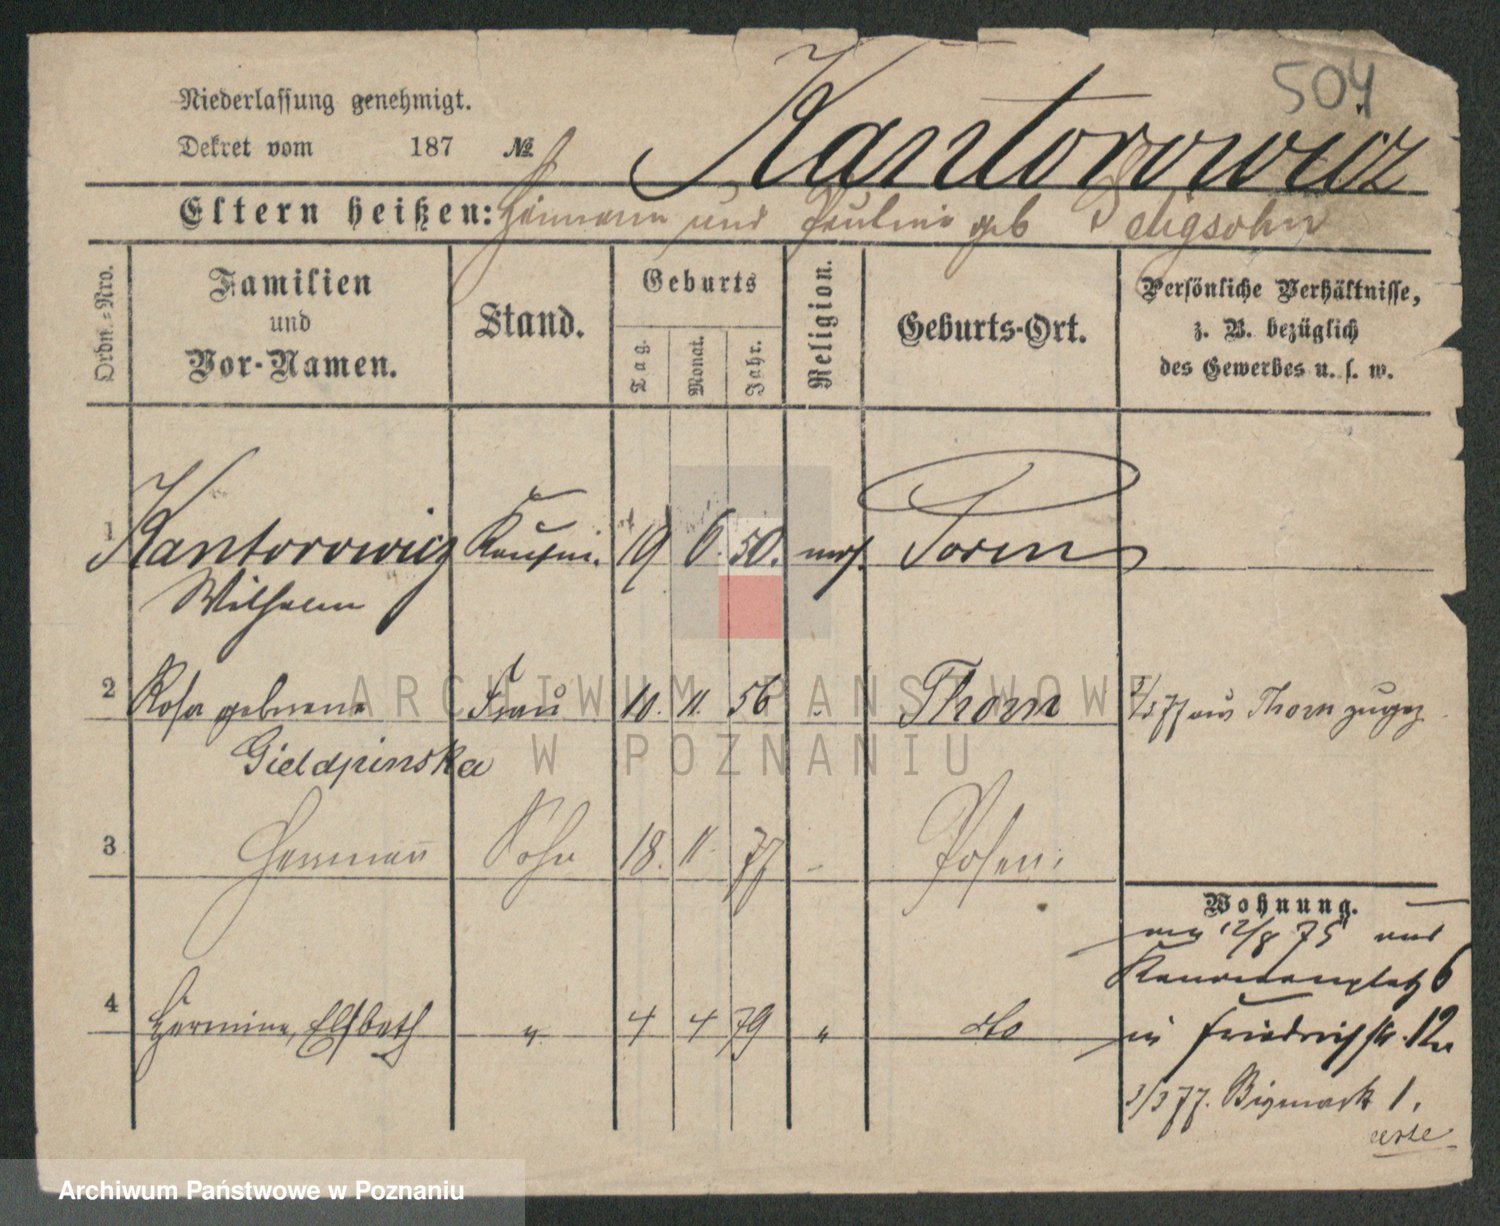 504
Niederlassung genehmigt.
Dekret vom 187 No
Kantorowicz
Eltern heißen: Heimann und Pauline geb Seligsohn
Ordn.-Nro.
Familien
und
Vor-Namen.
Stand.
Geburts
Tag.
Monat.
Jahr.
Religion.
Geburts-Ort.
Persönliche Verhältnisse,
z. B. bezüglich
des Gewerbes u. s. w.
1 Kantorowicz Kaufm. 19 6. 50. mos. Posen
Wilhelm
2 Rosa geborene Frau 10. 11. 56 " Thorn 2/3 77 aus Thorn zugez
Gieldzinska
3 Herrmann Sohn 18. 11. 77 - Posen.
Wohnung.
12/8 75 von
Kanonenplatz 6
4 Hermine, Elsbeth " 4 4 79 " do
in Friedrichstr. 12
3/3 77. Bismark 1.
ARCHIWUM PAŃSTWOWE
W POZNANIU
Archiwum Państwowe w Poznaniu